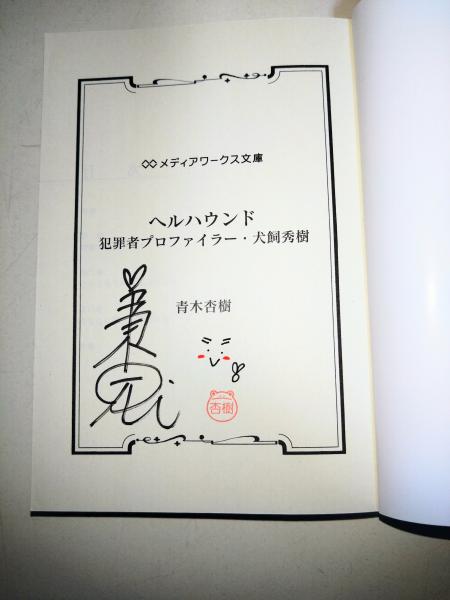 メディアワークス文庫
ヘルハウンド
犯罪者プロファイラー・犬飼秀樹
青木杏樹
杏樹